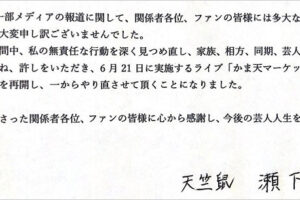 一部メディアの報道に関して、関係者各位、ファンの皆様には多大な
大変申し訳ございませんでした。
間中、私の無責任な行動を深く見つめ直し、家族、相方、同期、芸人
ね、許しをいただき、6月21日に実施するライブ「かま天マーケッ
を再開し、一からやり直させて頂くことになりました。
さった関係者各位、ファンの皆様に心から感謝し、今後の芸人人生を
天竺鼠 瀬下